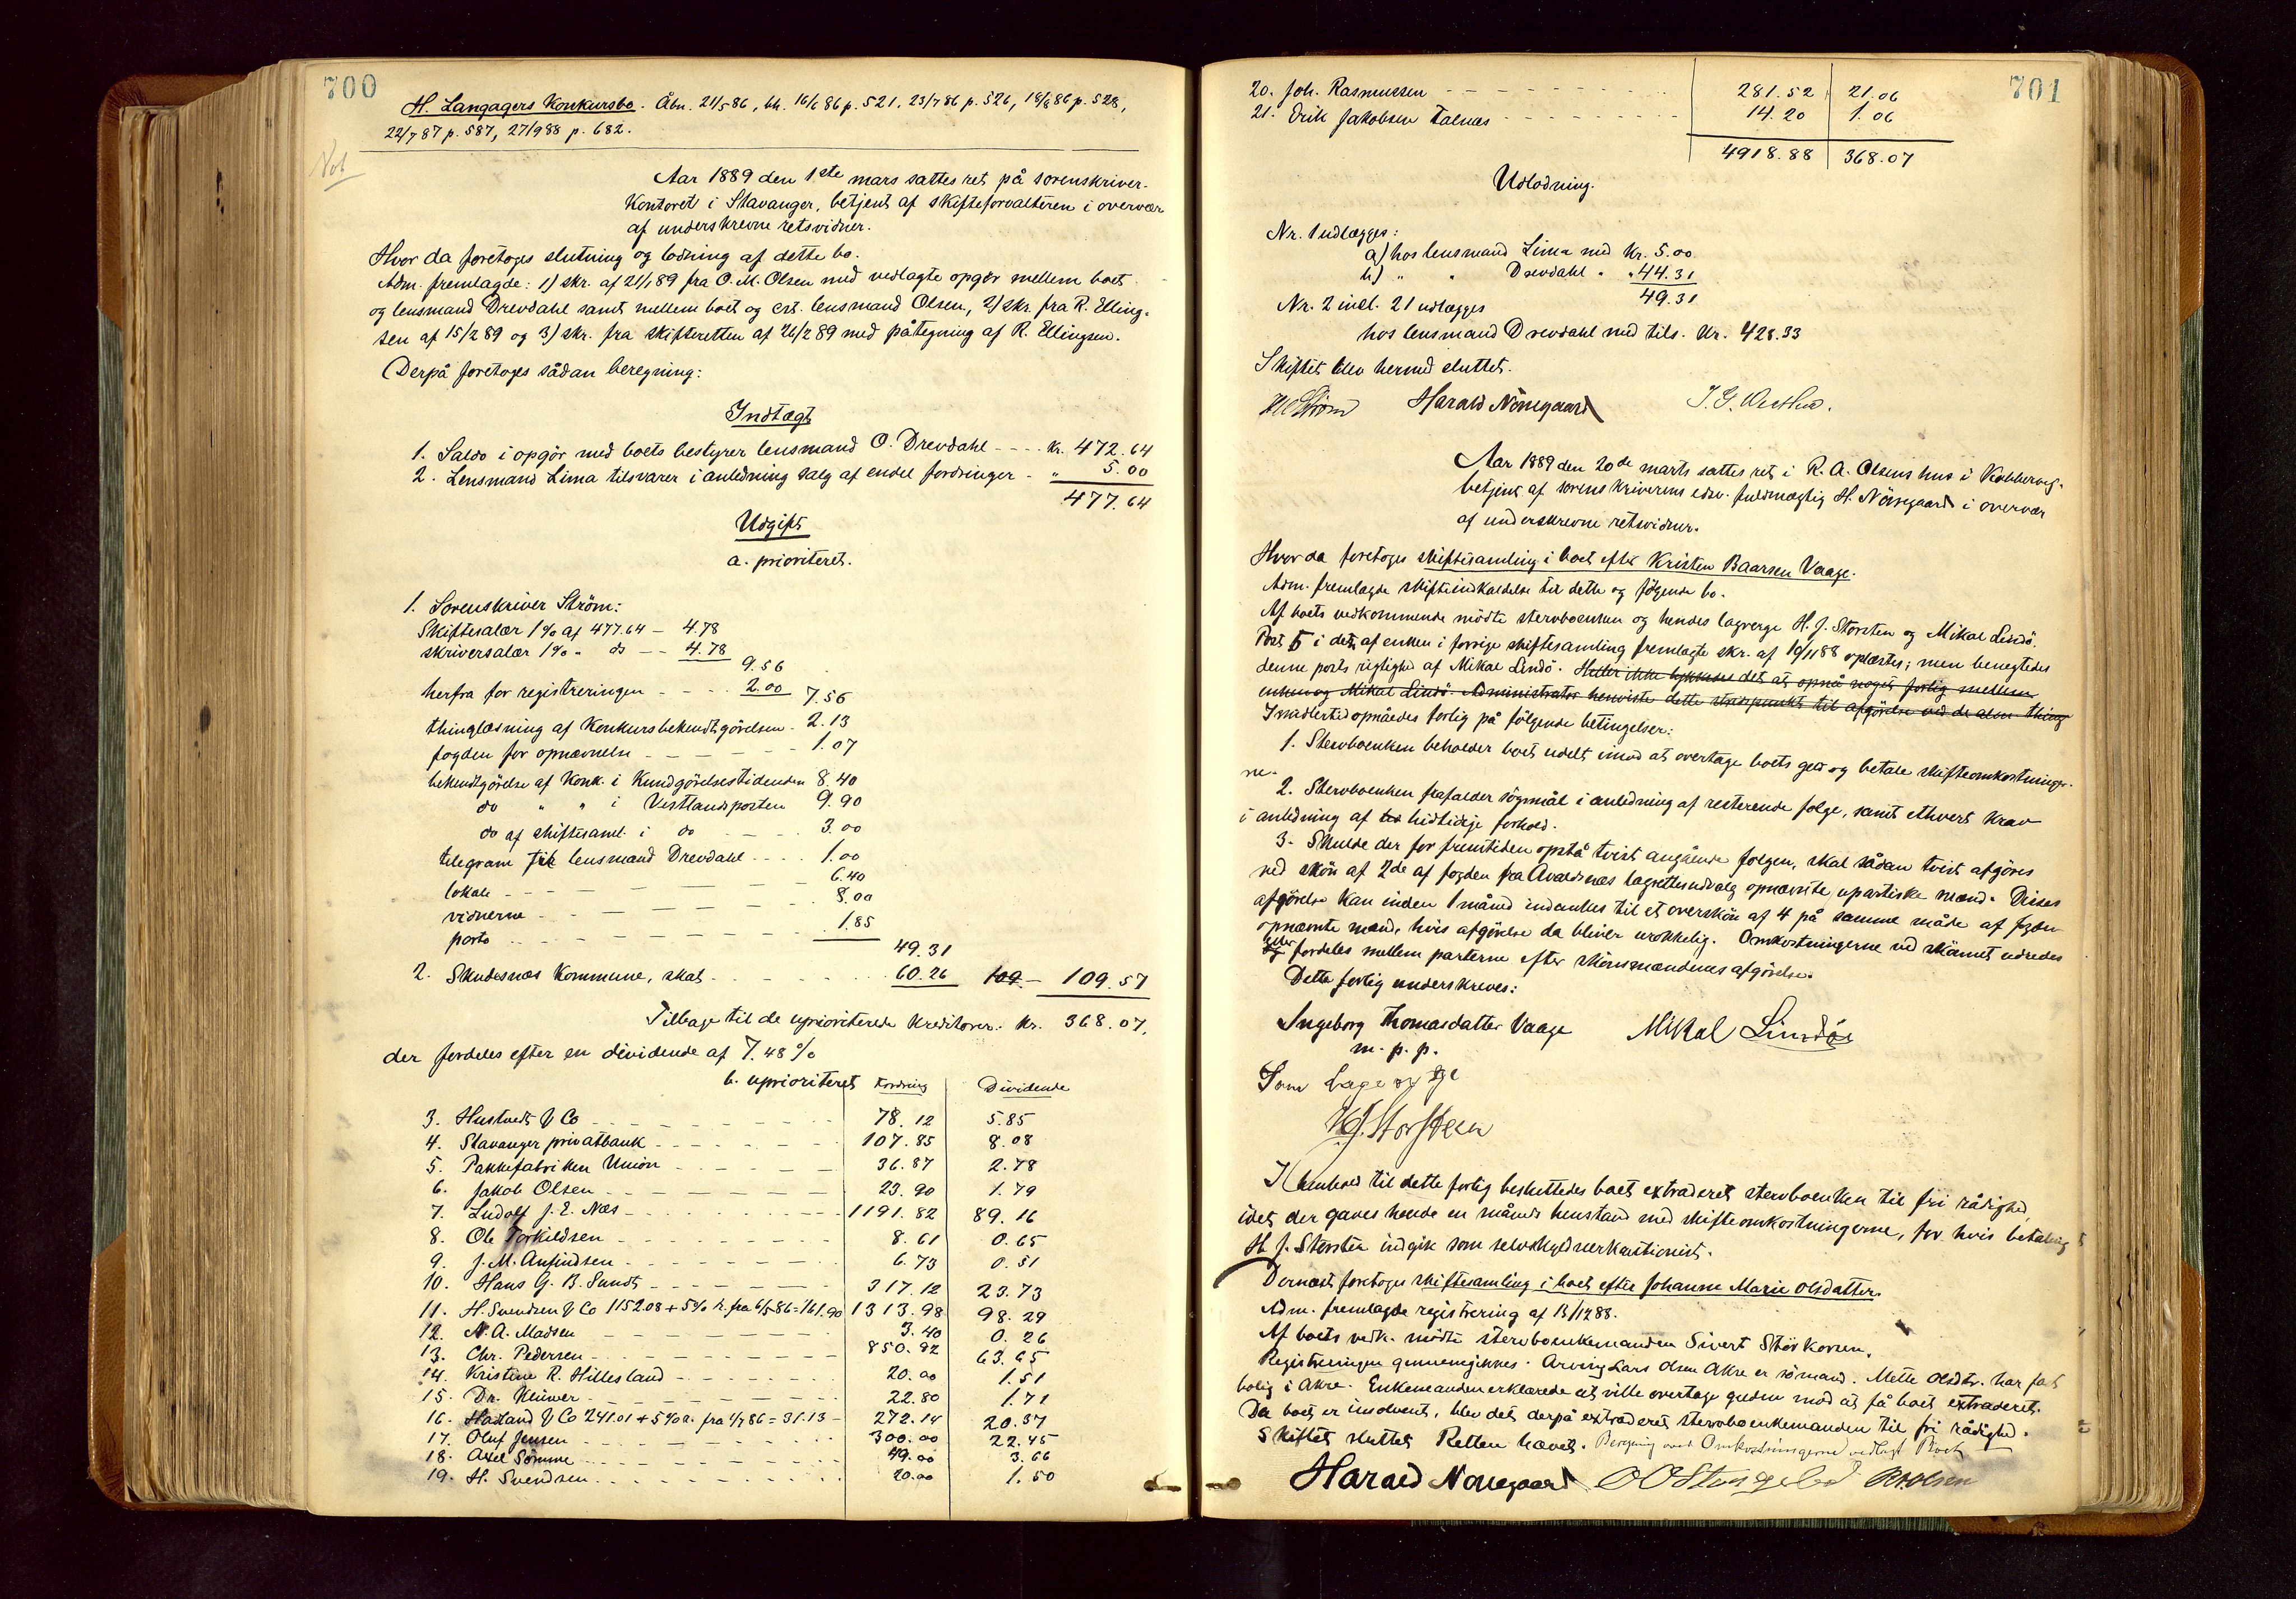 700
H. Langagers Konkursbo. Åbn. 21/5 86, bh. 16/6 86 p. 521, 23/7 86 p. 526, 18/8 86 p. 528,
22/7 87 p. 587, 27/9 88 p. 682.
Not
Aar 1889 den 1ste mars sattes ret på sorenskriver-
kontoret i Stavanger, betjent af skifteforvalteren i overvær
af underskrevne retsvidner.
Hvor da foretoges slutning og lodning af dette bo.
Adm. fremlagde: 1) skr. af 21/1 89 fra O. M. Olsen med vedlagte opgør mellem boet
og lensmand Drevdahl samt mellem boet og cst. lensmand Olsen, 2) skr. fra R. Elling-
sen af 15/2 89 og 3) skr. fra skifteretten af 26/2 89 med påtegning af R. Ellingsen.
Derpå foretoges sådan beregning:
Indtægt
1. Saldo i opgör med boets bestyrer lensmand O. Drevdahl - - - - kr. 472.64
2. Lensmand Lima tilsvarer i anledning salg af endel fordringer - " 5.00
477.64
Udgift
a. prioriteret.
1. Sorenskriver Ström:
Skiftesalær 1% af 477.64 - 4.78
skriversalær 1% " do - - 4.78
9.56
herfra for registreringen - - - - 2.00 7.56
thinglæsning af Konkursbekendtgörelsen - 2.13
fogden for opnævnelse - - - - - 1.07
bekendtgörelse af Konk. i Kundgörelsestidenden 8.40
do " " i Vestlandsposten 9.90
do af skiftesaml. i do - - - - 3.00
telegram til lensmand Drevdahl - - - - 1.00
lokale - - - - - - - - 6.40
vidnerne - - - - - - - 8.00
porto - - - - - - - - 1.85
49.31
2. Skudesnæs Kommune, skat - - - - - 60.26 109 - 109.57
Tilbage til de uprioriterede kreditorer: kr. 368.07,
der fordeles efter en dividende af 7.48%
b. uprioriteret Fordring Dividende
3. Hustvedt & Co - - - - 78.12 5.85
4. Stavanger privatbank - - - - 107.85 8.08
5. Pakkefabriken Union - - - - 36.87 2.78
6. Jakob Olsen - - - - 23.90 1.79
7. Ludolf J. E. Næs - - - - 1191.82 89.16
8. Ole Torkildsen - - - - 8.61 0.65
9. J. M. Anfindsen - - - - 6.73 0.51
10. Hans G. B. Sundt - - - - 317.12 23.73
11. H. Svendsen & Co 1152.08 + 5% r. fra 6/5 86 = 161.90 1313.98 98.29
12. N. A. Madsen - - - - 3.40 0.26
13. Chr. Pedersen - - - - 850.92 63.65
14. Kristine R. Hillesland - - - - 20.00 1.51
15. Dr. Klüwer - - - - 22.80 1.71
16. Haaland & Co 241.01 + 5% r. fra 4/7 86 = 31.13 - 272.14 20.37
17. Oluf Jensen - - - - 300.00 22.45
18. Axel Sömme - - - - 49.00 3.66
19. H. Svendsen - - - - 20.00 1.50
701
20. Joh. Rasmussen - - - - 281.52 21.06
21. Erik Jakobsen Falnæs - - - - 14.20 1.06
4918.88 368.07
Udlodning.
Nr. 1 udlægges:
a) hos lensmand Lima med kr. 5.00
b) " " Drevdahl " " 44.31
49.31
Nr. 2 incl. 21 udlægges
hos lensmand Drevdahl med tils. kr. 428.33
Skiftet blev hermed sluttet.
Ström Harald Nörregaard
Aar 1889 den 20de marts sattes ret i R. A. Olsens hus i Kobbervig,
betjent af sorenskriverens edsv. fuldmægtig H. Nörregaard i overvær
af underskrevne retsvidner.
Hvor da foretoges skiftesamling i boet efter Kristen Baarsen Vaage.
Adm. fremlagde skifteindkaldelse til dette og følgende bo.
Af boets vedkommende mödte stervboenken og hendes lagverge H. J. Storsten og Mikal Lindö.
Post 5 i det af enken i forrige skiftesamling fremlagte skr. af 19/11 88 oplæstes; men benegtedes
denne posts rigtighed af Mikal Lindö. Heller ikke lykkedes det at opnå noget forlig mellem
enken og Mikal Lindö. Administrator henviste dette stridspunkt til afgjörelse ved de alm. thing
Imidlertid opnåedes forlig på fölgende betingelser:
1. Stervboenken beholder boet udelt imod at overtage boets gæld og betale skifteomkostninger-
ne.
2. Stervboenken frafalder sögsmål i anledning af resterende folge, samt ethvert krav
i anledning af hidtidige forhold.
3. Skulde der for fremtiden opstå tvist angående folgen, skal sådan tvist afgöres
ved skön af 2de af fogden fra Avaldsnæs lagretteudvalg opnævnte upartiske mænd. Disses
afgörelse kan inden 1 måned indankes til et overskön af 4 på samme måde af fogden
opnævnte mænd, hvis afgörelse da bliver urokkelig. Omkostningerne ved skönnet udredes
eller fordeles mellem parterne efter skönsmændenes afgörelse.
Dette forlig underskreves:
Ingeborg Thomasdatter Vaage Mikal Lindöe
m. p. p.
Som Lagverge
H J. Storsteen
I Henhold til dette forlig besluttedes boet extraderet stervboenken til fri rådighed,
idet der gaves hende en måneds henstand med skifteomkostningerne, for hvis betaling
H. J. Storsten indgik som selvskyldnerkautionist.
Dernæst foretoges skiftesamling i boet efter Johanne Marie Olsdatter.
Adm. fremlagde registrering af 13/12 88.
Af boets vedk. mödte stervboenkemanden Sivert Störkorsen.
Registreringen gennemgikkes. Arving Lars Olsen Akre er sömand. Mette Olsdtr. har fast
bolig i Akre. Enkemanden erklærede at ville overtage gælden mod at få boet extraderet.
Da boet er insolvent, blev det derpå extraderet stervboenkemanden til fri rådighed.
Skiftet sluttet. Retten hævet. Beregning over Omkostningerne vedlagt Boet
Harald Nörregaard R A Olsen